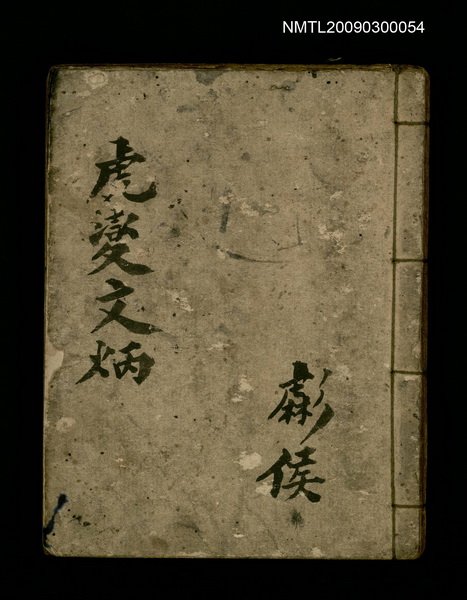 NMTL20090300054
侯
虎變文炳